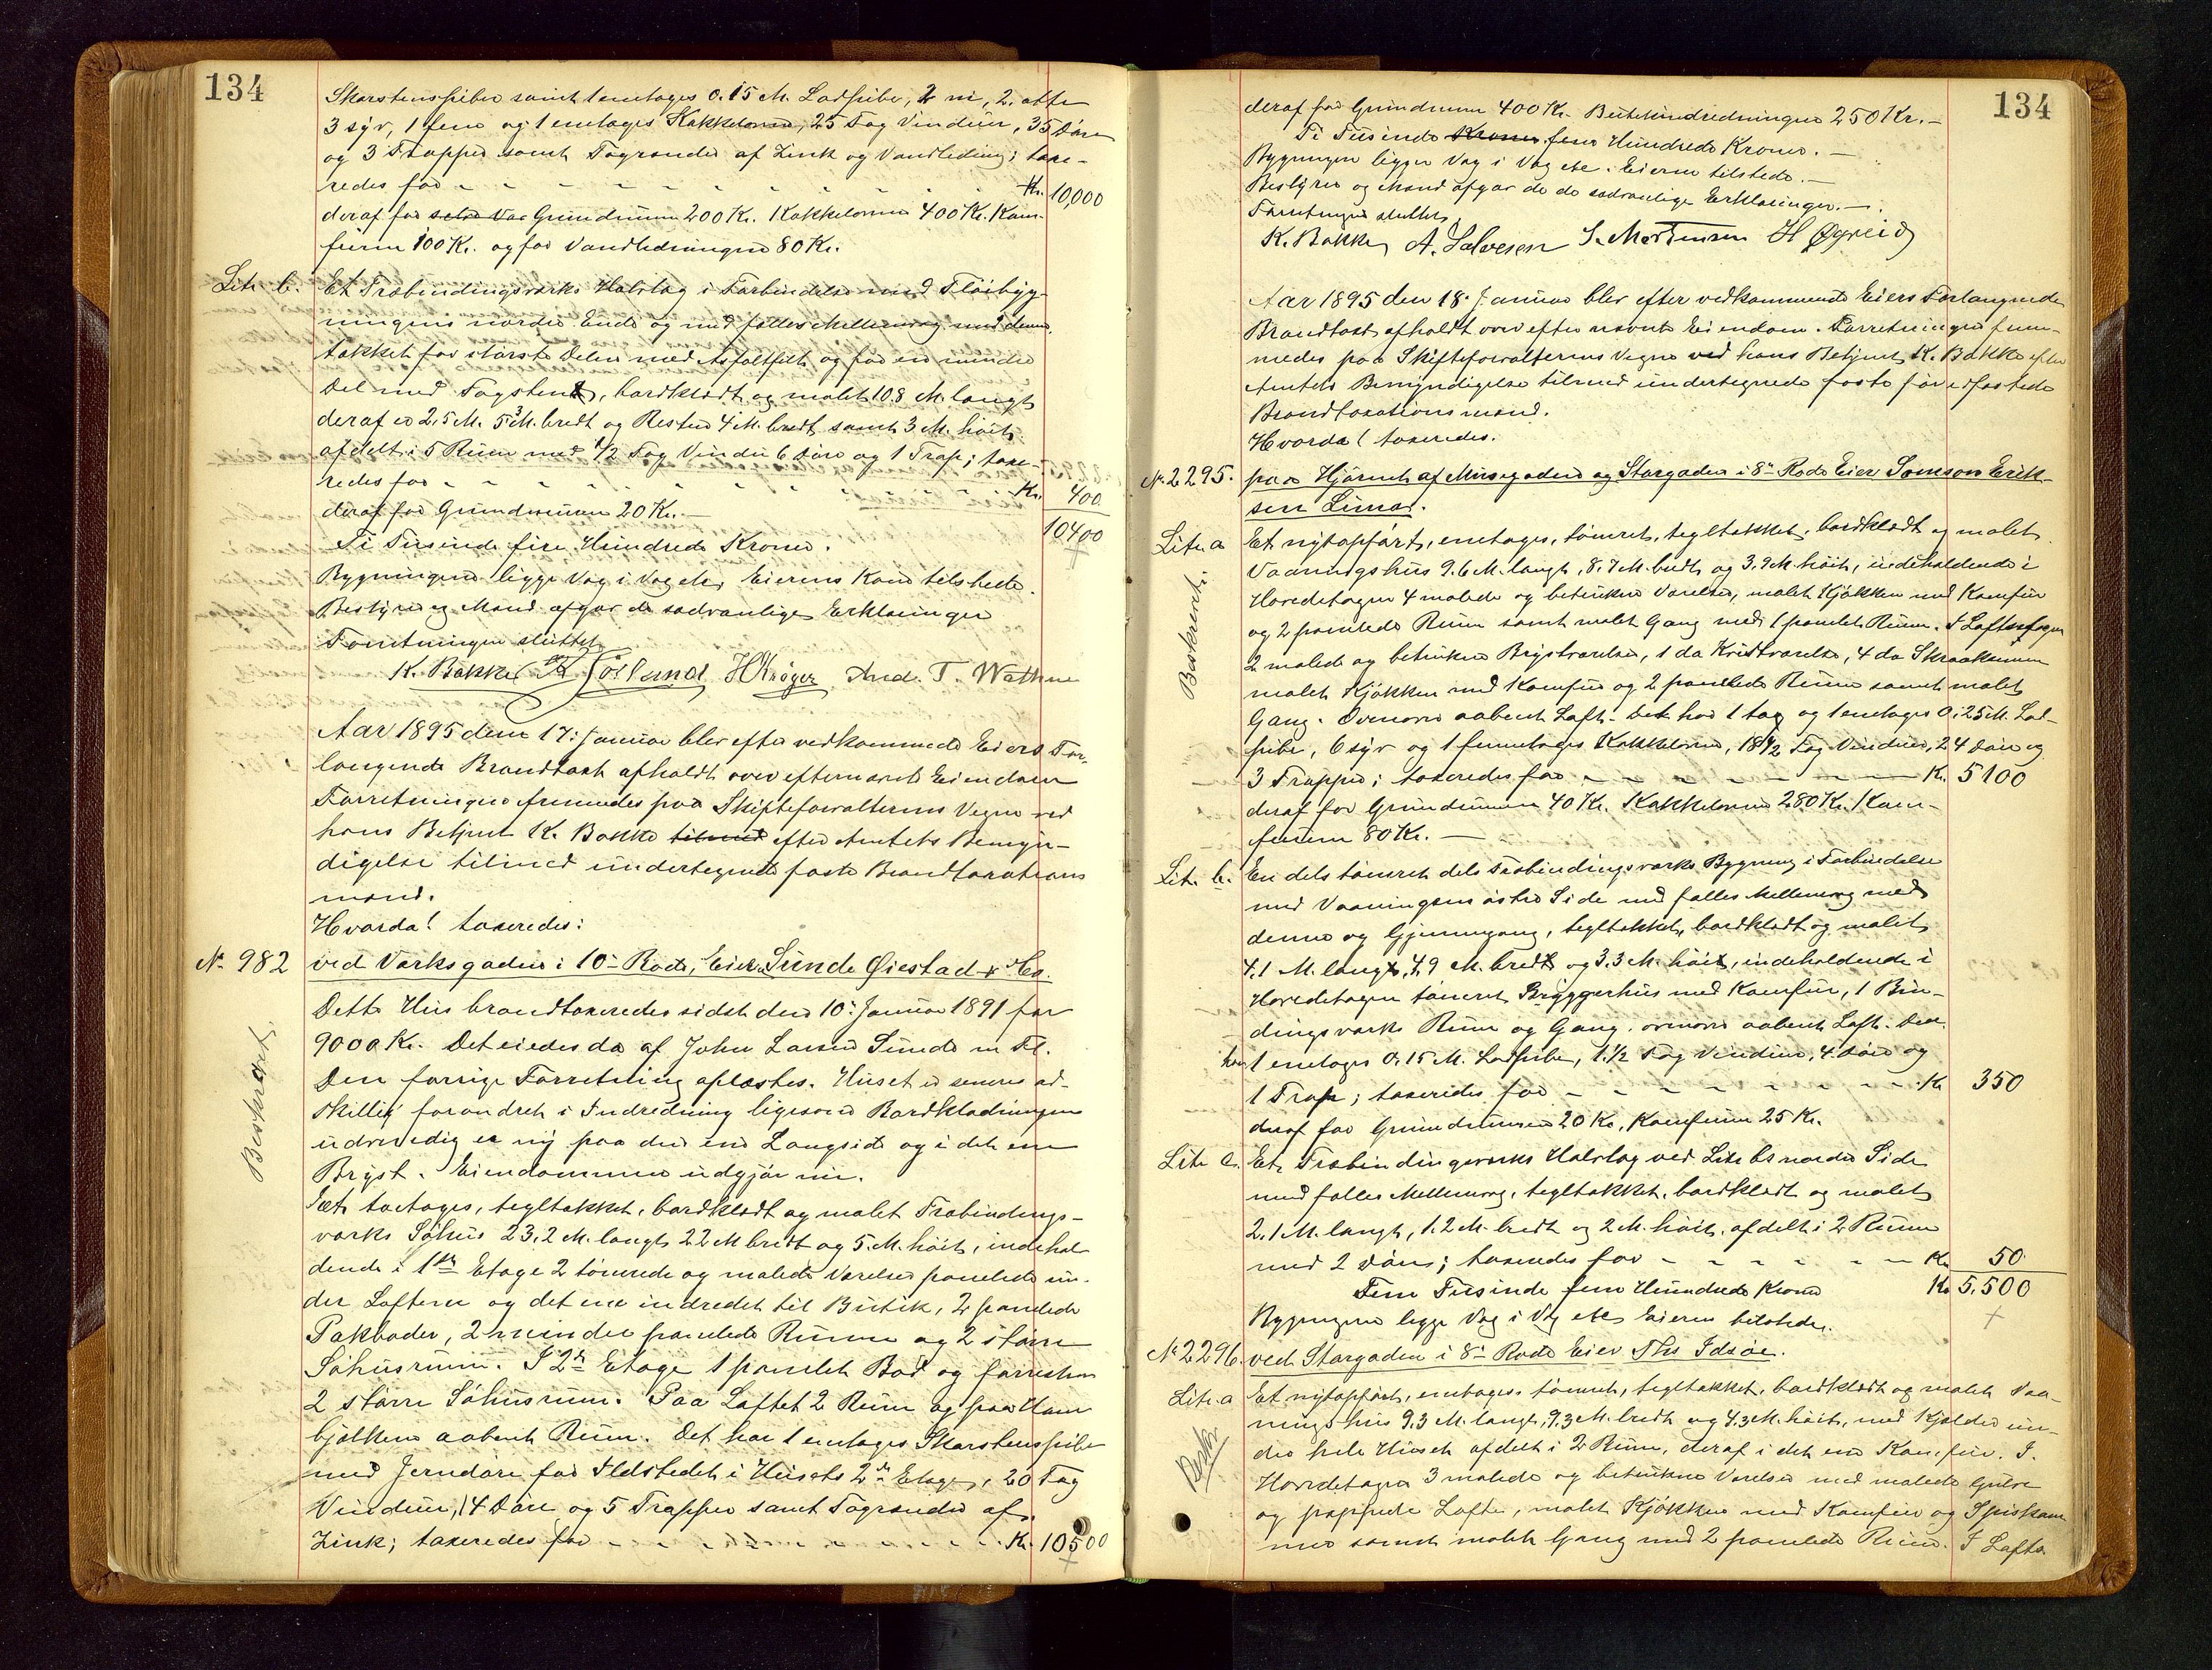 134
Skorstenspiber samt 1 enetages 0.15 M. Ladpibe, 2 ni, 2 otte
3 syv, 1 fem og 1 enetages Kakkelovne, 25 Fag Vinduer, 35 Døre
og 3 Trapper samt Tagrender af Zink og Vandledning; taxe-
redes for - - - - - - - - - Kr. 10,000
deraf for selve Vaa Grundmuren 200 Kr. Kakkelovne 400 Kr. Kom-
furene 100 Kr. og for Vandledningen 80 Kr.
Litr. b. Et Træbindingsværks Halvtag i Forbindelse med Fløibyg-
ningens nordre Ende og med fælles Mellemvæg med denne,
tækket for største Delen med Asfaltfilt og for en mindre
Del med Tagsten, bordklædt og malet 10.8 M. langt
deraf er 2.5 M. 5.3 M. bredt og Resten 4 M. bredt samt 3 M. høit
afdelt i 5 Rum med 1/2 Fag Vindu 6 Døre og 1 Trap; taxe-
redes for - - - - - - - - Kr. 400
deraf for Grundmuren 20 Kr. —
10400
Ti Tusinde fire Hundrede Kroner.
Bygningerne ligge Væg i Væg etc. Eierens Kone tilstede.
Bestyrer og Mænd afgav de sædvanlige Erklæringer
Forretningen sluttet
K. Bakke Sørland H Krøger And. T. Wathne
Aar 1895 den 17. Januar blev efter vedkommende Eiers For-
langende Brandtaxt afholdt over efternævnte Eiendom
Forretningen fremmedes paa Skifteforvalterens Vegne ved
hans Betjent K. Bakke tilmed efter Amtets Bemyn-
digelse tilmed undertegnede faste Brandtaxations
mænd.
Hvorda! taxeredes:
No 982 ved Værksgaden i 10de Rode, Eier Sunde Øiestad & Co.
Beskrevet.
Dette Hus brandtaxeredes sidst den 10. Januar 1891 for
9000 Kr. Det eiedes da af John Larsen Sunde m Fl.
Den forrige Forretning oplæstes. Huset er senere ad-
skillig forandret i Indredning ligesom Bordklædningen
udvendig er ny paa den ene Langside og i det ene
Bryst. Eiendommen udgjør nu.
Et toetages, tegltækket, bordklædt og malet Træbindings-
værks Søhus 23,2 M. langt 22 M bredt og 5. M. høit, indehol-
dende i 1ste Etage 2 tømrede og malede Værelser panelede un-
der Lofterne og det ene indredet til Butik, 2 panelede
Pakboder, 2 mindre panelede Rum og 2 større
Søhusrum. I 2den Etage 1 panelet Bod og forresten
2 større Søhusrum. Paa Loftet 2 Rum og paa Hane
bjælkene aabent Rum. Det har 1 enetages Skorstenspibe
med Jerndøre for Ildstedet i Husets 2den Etage, 20 Fag
Vinduer, 14 Døre og 5 Trapper samt Tagrender af
Zink; taxeredes for - - - - - - - - Kr. 10500
134
deraf for Grundmuren 400 Kr. Butikindredningen 250 Kr. —
Ti Tusinde Kroner fem Hundrede Kroner. —
Bygningen ligger Væg i Væg etc. Eierne tilstede. —
Bestyrer og Mænd afgav de de sædvanlige Erklæringer. —
Forretningen sluttet.
K. Bakke A. Salvesen S. Mortensen H Øgreid
Aar 1895 den 18. Januar blev efter vedkommende Eiers Forlangende
Brandtaxt afholdt over efternævnte Eiendom. Forretningen frem-
medes paa Skifteforvalterens Vegne ved hans Betjent K. Bakke efter
Amtets Bemyndigelse tilmed undertegnede faste
Brandtaxationsmænd.
Hvorda! taxeredes.
No 2295. paa Hjørnet af Musegaden og Storgaden i 8de Rode Eier Samson Erik-
sen Limo.
Beskrevet.
Litr. a Et nyopført, enetages, tømret, tegltækket, bordklædt og malet
Vaaningshus 9.6 M. langt, 8.7 M. bredt og 3.9 M. høit, indeholdende i
Hovedetagen 4 malede og betrukne Værelser, malet Kjøkken med Komfur
og 2 panelede Rum samt malet Gang med 1 panelet Rum. I Loftsetagen
2 malede og betrukne Brystværelser, 1 do Kvistværelse, 4 do Skraakamre
malet Kjøkken med Komfur og 2 panelede Rum samt malet
Gang. Ovenover aabent Loft. Det har 1 to og 1 enetages 0.25 M. Lad-
pibe, 6 syv og 1 femetages Kakkelovne, 18 1/2 Fag Vinduer, 24 Døre og
3 Trapper; taxeredes for - - - - - - - Kr. 5100
deraf for Grundmuren 40 Kr. Kakkelovne 280 Kr. Kom-
furene 80 Kr. —
Litr. b. En dels tømret dels Træbindingsværks Bygning i Forbindelse
med Vaaningens østre Side med fælles Mellemvæg med
denne og Gjennemgang, tegltækket, bordklædt og malet
4.1 M. langt, 4.9 M. bredt og 3.3 M. høit, indeholdende i
Hovedetagen tømret Bryggerhus med Komfur, 1 Bin-
dingsværks Rum og Gang. ovenover aabent Loft. Den
har 1 enetages 0.15 M. Ladpibe, 1 1/2 Fag Vinduer, 4 Døre og
1 Trap; taxeredes for - - - - - - - - Kr 350
deraf for Grundmuren 20 Kr., Komfuren 25 Kr.
Litr c. Et Træbindingsværks Halvtag ved Litr bs nordre Side
med fælles Mellemvæg, tegltækket, bordklædt og malet
2.1 M. langt, 1.2 M. bredt og 2 M. høit, afdelt i 2 Rum
med 2 Døre; taxeredes for - - - - - - Kr 50
Fem Tusinde fem Hundrede Kroner Kr 5,500
Bygningerne ligge Væg i Væg etc Eieren tilstede.
No 2296. ved Storgaden i 8de Rode Eier Ths Idsøe.
Beskr
Litr. a Et nyopført, enetages, tømret, tegltækket, bordklædt og malet Vaa-
ningshus 9.3 M. langt, 9.3 M. bredt og 4.3 M. høit, med Kjælder un-
der hele Huset afdelt i 2 Rum, deraf i det ene Komfur. I
Hovedetagen 3 malede og betrukne Værelser med malede Gulve
og pappede Lofte, malet Kjøkken med Komfur og Spiskam
mer samt malet Gang med 2 panelede Rum. I Lofts